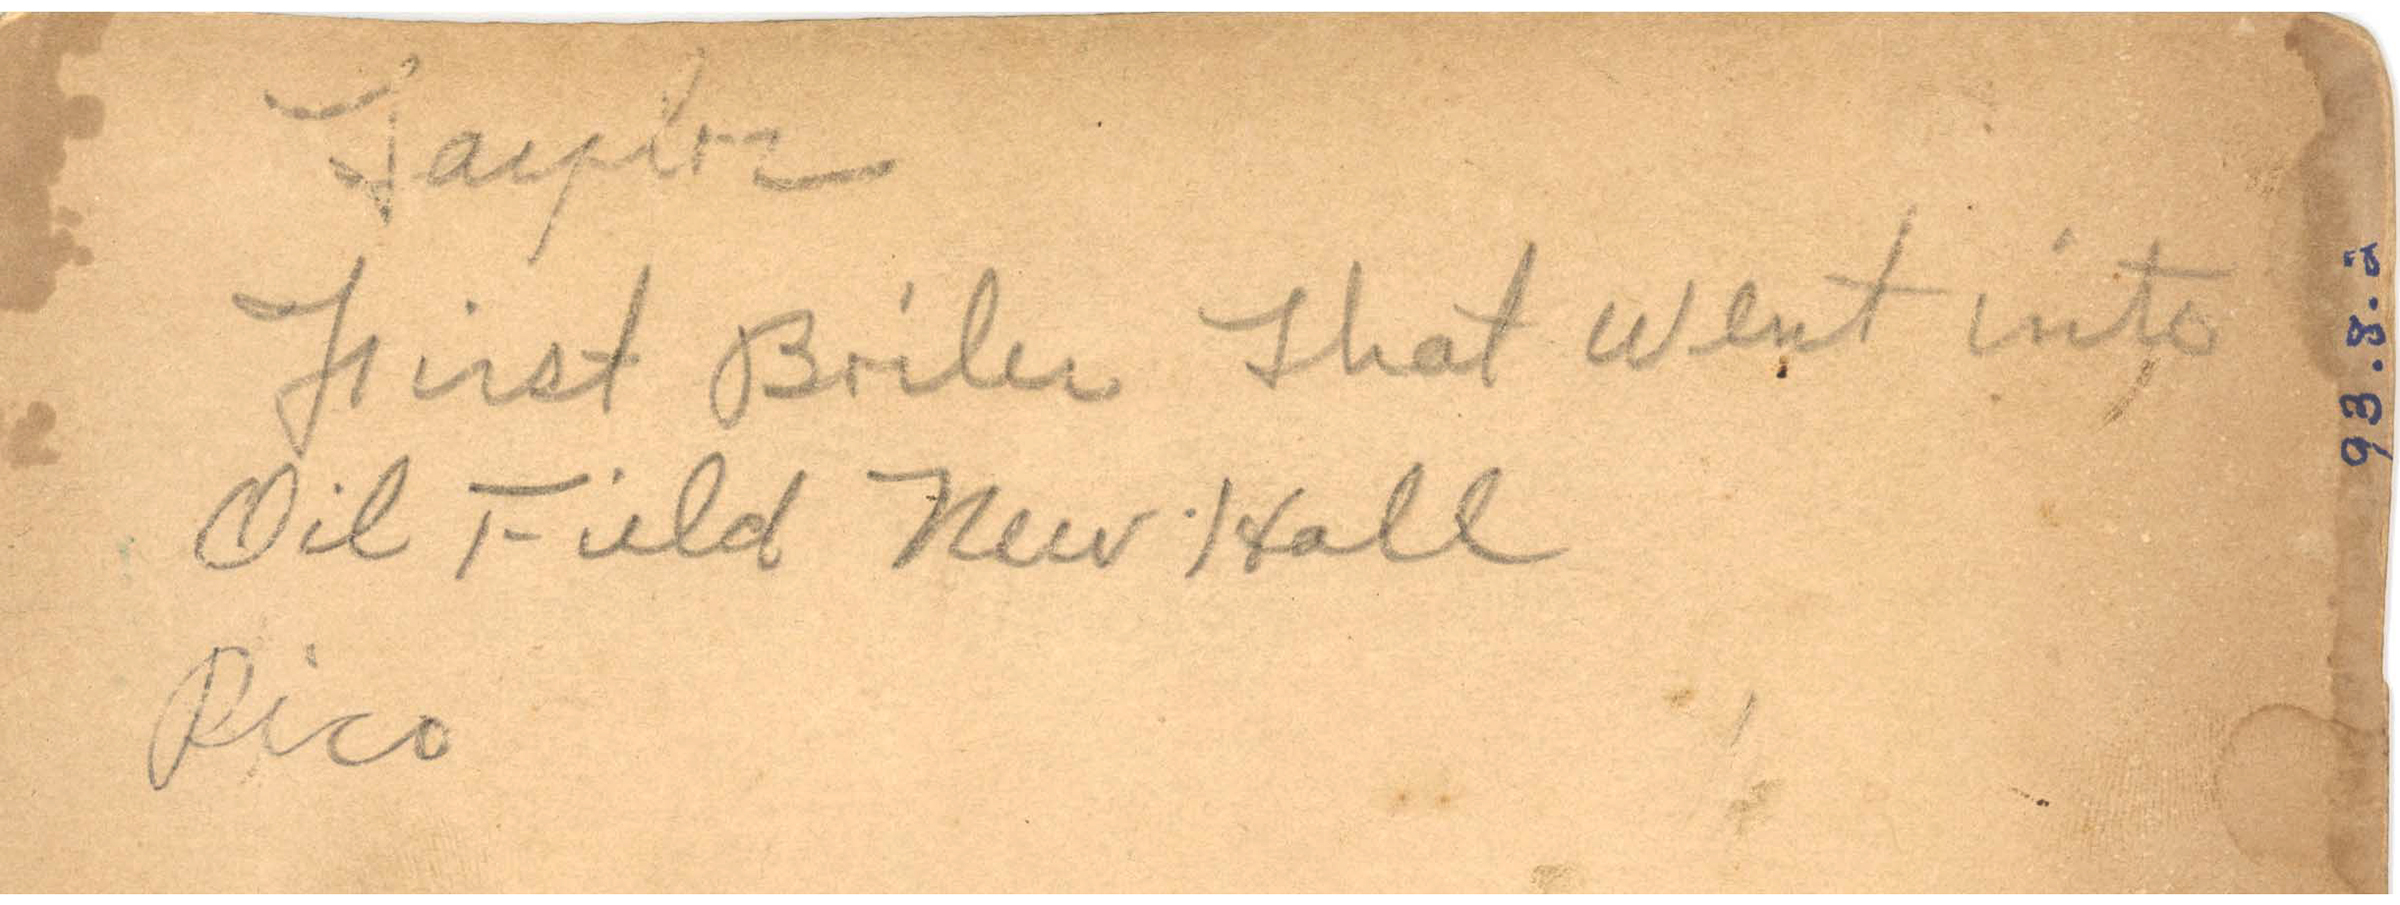 Taylor
First Boiler That went into
Oil Field New Hall
Pico
93.8.2